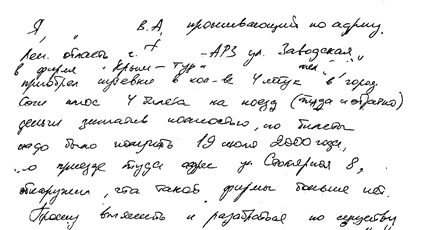 Я, " В.А, проживающий по адресу.
Лен. область г. " -АРЗ ул. Заводская "
в фирме "Крым - Тур" тел " " "
приобрел путевки в кол-ве 4 штук в город
Сочи плюс 4 билета на поезд (туда и обратно)
деньги заплатив полностью, но билеты
надо было получить 19 июля 2000 года,
но приезде туда адрес ул. 8,
обнаружил, что такой фирмы больше нет.
Прошу выяснить и разобраться по существу